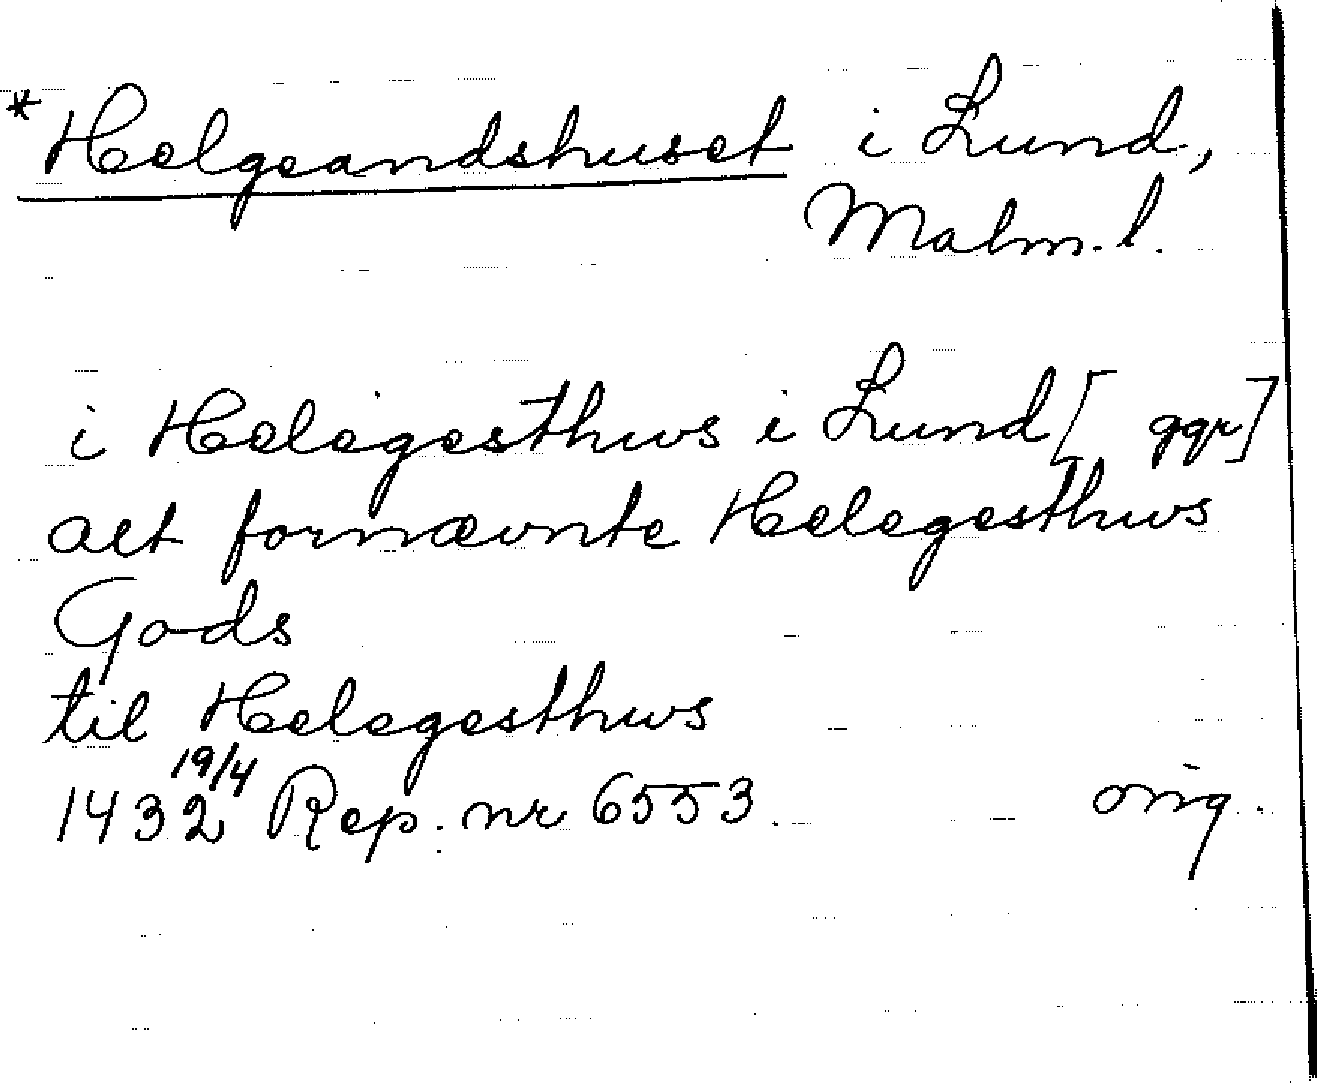 *Helgeandshuset i Lund,
Malm. l.
i Helegesthws i Lund [ ggr]
alt fornævnte Helegesthws
Gods
til Helegesthws
1432 19/4 Rep. nr 6553. orig.